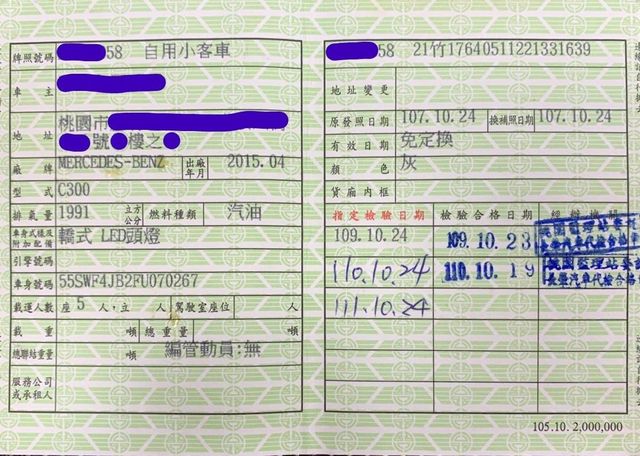 牌照號碼 58 自用小客車
車主
地址 桃園市
號 樓之
廠牌 MERCEDES-BENZ 出廠年月 2015.04
型式 C300
排氣量 1991 立方公分 燃料種類 汽油
車身式樣及附加配備 轎式 LED頭燈
引擎號碼
車身號碼 55SWF4JB2FU070267
載運人數 座 5 人,立 人 駕駛室座位 人
載重 噸 總重量 噸
總聯結重量 噸 編管動員:無
服務公司或承租人
58 21竹17640511221331639
地址變更
原發照日期 107.10.24 換補照日期 107.10.24
有效日期 免定換
顏色 灰
貨廂內框
指定檢驗日期 檢驗合格日期
109.10.24 109.10.23 桃園監理站委託
長榮汽車代檢合格
110.10.24 110.10.19 桃園監理站委託
長榮汽車代檢合格
111.10.24
105.10. 2,000,000